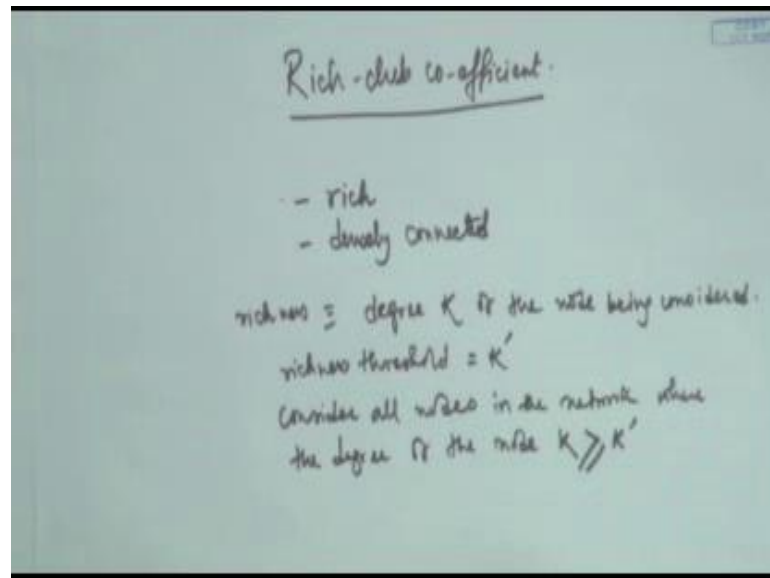 Rich-club co-efficient.
- rich
- densely connected
richness ≡ degree K of the node being considered.
richness threshold = K'
Consider all nodes in the network where
the degree of the node K ≥ K'